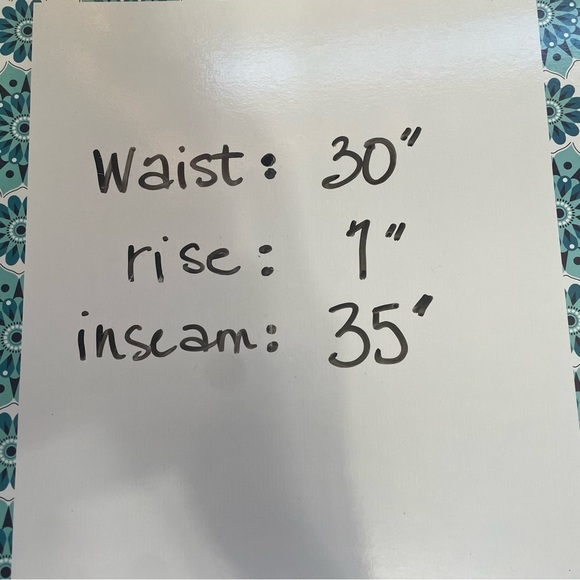 Waist: 30"
rise: 7"
inseam: 35"